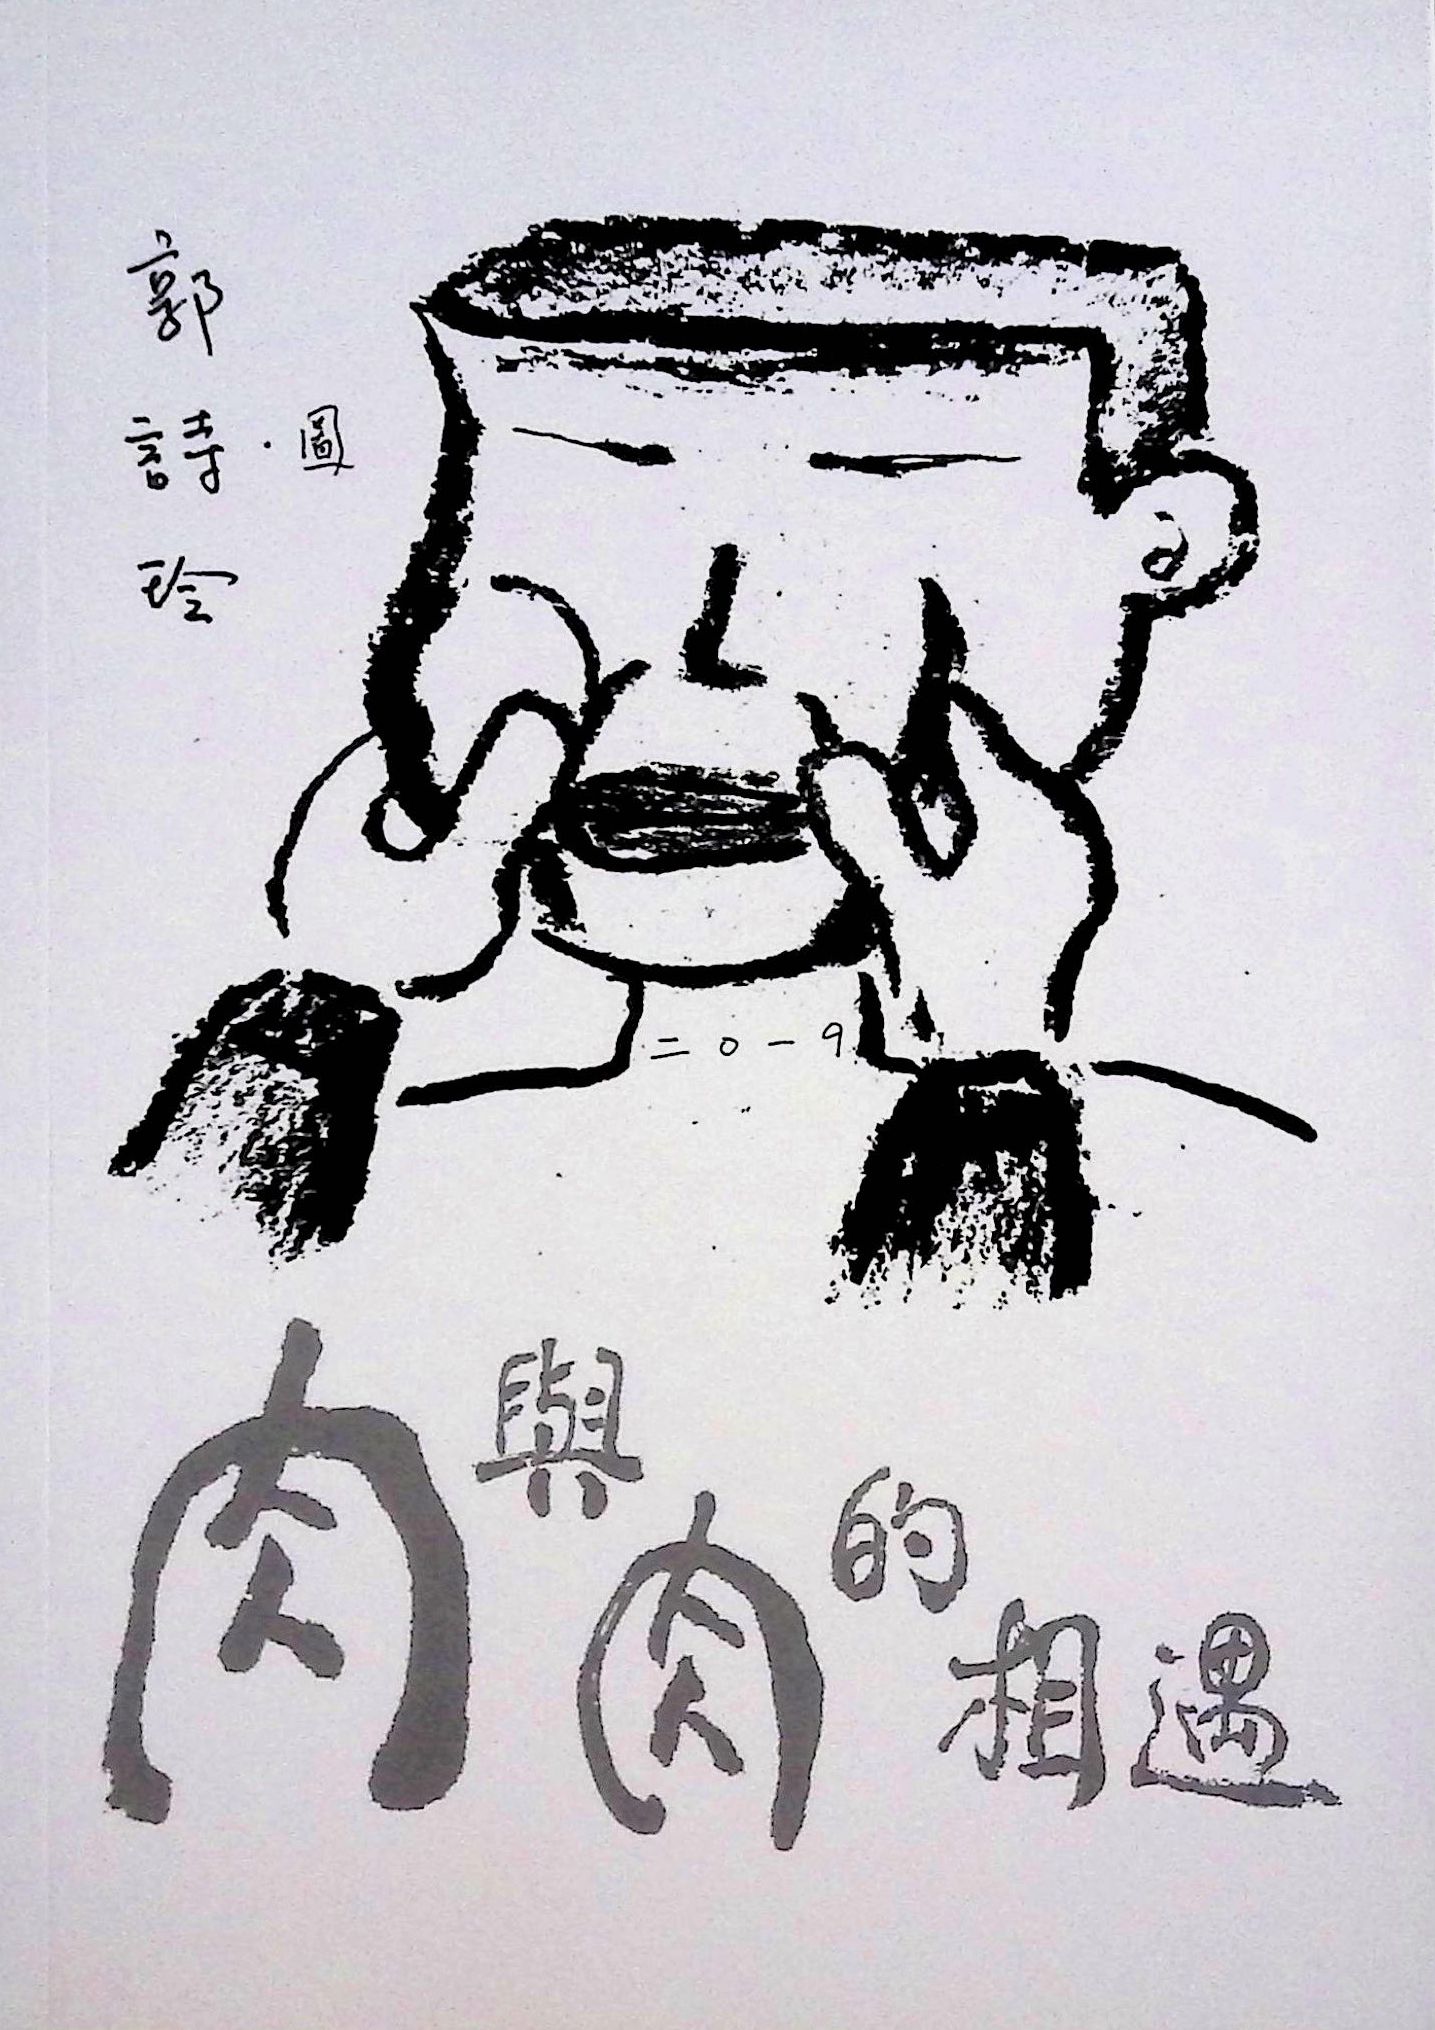 郭
詩·圖
玲
二〇一9
肉與肉的相遇